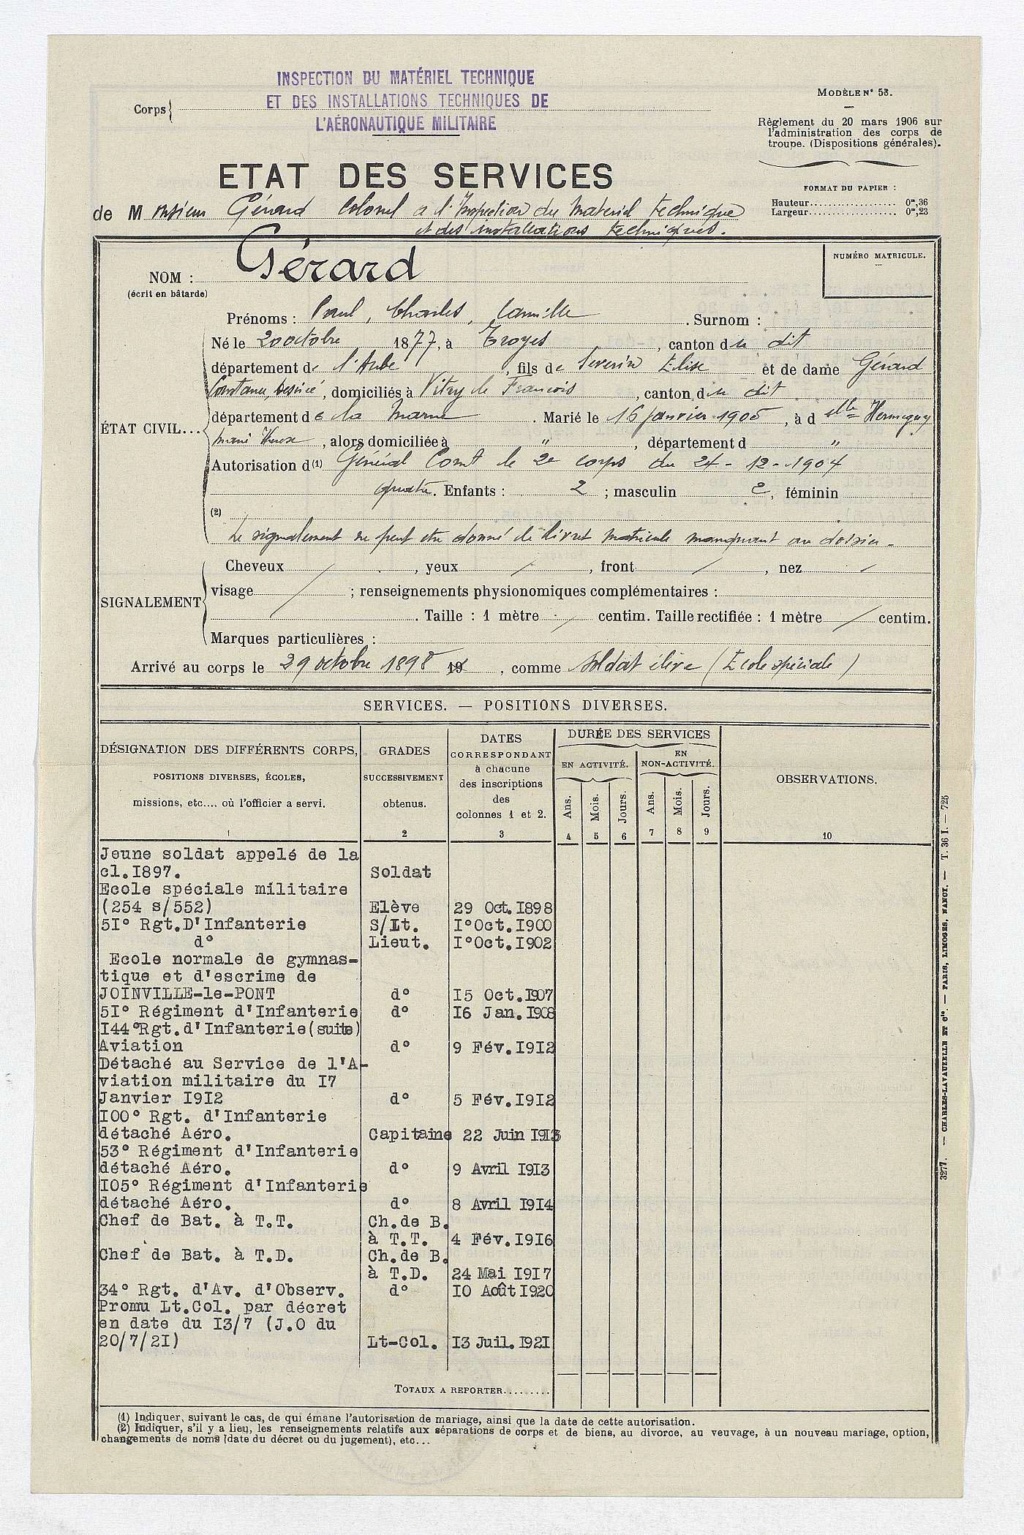 INSPECTION DU MATÉRIEL TECHNIQUE
ET DES INSTALLATIONS TECHNIQUES DE
L'AÉRONAUTIQUE MILITAIRE
Corps
MODÈLE N° 53.
Règlement du 20 mars 1906 sur
l'administration des corps de
troupe. (Dispositions générales).
FORMAT DU PAPIER :
Hauteur 0m,36
Largeur 0m,23
ETAT DES SERVICES
de Monsieur Gérard Colonel a l'Inspection du Materiel technique
et des installations techniques.
NUMÉRO MATRICULE.
NOM : Gérard
(écrit en bâtarde)
Prénoms : Paul, Charles, Camille . Surnom :
ÉTAT CIVIL...
Né le 20 octobre 1877, à Troyes , canton du dit
département de l'Aube , fils de Severin Elise et de dame Gérard
Constance Desiré, domiciliés à Vitry le Francois , canton du dit
département de la Marne . Marié le 16 janvier 1905 , à d elle
, alors domiciliée à " , département d "
Autorisation d(1) Général Comt le 2e corps du 24-12-1904
quatre. Enfants : 2 ; masculin 2, féminin
(2)
Le signalement ne peut etre donné le livret matricule manquant au dossier.
SIGNALEMENT
Cheveux / , yeux / , front / , nez /
visage / ; renseignements physionomiques complémentaires :
. Taille : 1 mètre / centim. Taille rectifiée : 1 mètre / centim.
Marques particulières :
Arrivé au corps le 29 octobre 1898 19 , comme soldat élève (Ecole spéciale)
SERVICES. — POSITIONS DIVERSES.
DÉSIGNATION DES DIFFÉRENTS CORPS,
POSITIONS DIVERSES, ÉCOLES,
missions, etc.... où l'officier a servi.
1
GRADES
SUCCESSIVEMENT
obtenus.
2
DATES
CORRESPONDANT
à chacune
des inscriptions
des
colonnes 1 et 2.
3
DURÉE DES SERVICES
EN ACTIVITÉ.
EN
NON-ACTIVITÉ.
Ans. Mois. Jours. Ans. Mois. Jours.
4 5 6 7 8 9
OBSERVATIONS.
10
Jeune soldat appelé de la
cl.I897. Soldat
Ecole spéciale militaire
(254 s/552) Elève 29 Oct.I898
5I° Rgt.D'Infanterie S/Lt. I°Oct.I900
d° Lieut. I°Oct.I902
Ecole normale de gymnas-
tique et d'escrime de
JOINVILLE-le-PONT d° I5 Oct.I907
5I° Régiment d'Infanterie d° I6 Jan.I908
I44°Rgt.d'Infanterie(suite)
Aviation d° 9 Fév.I9I2
Détaché au Service de l'A-
viation militaire du I7
Janvier I9I2 d° 5 Fév.I9I2
I00° Rgt. d'Infanterie
détaché Aéro. Capitaine 22 Juin I9I3
53° Régiment d'Infanterie
détaché Aéro. d° 9 Avril I9I3
I05° Régiment d'Infanterie
détaché Aéro. d° 8 Avril I9I4
Chef de Bat. à T.T. Ch.de B.
à T.T. 4 Fév.I9I6
Chef de Bat. à T.D. Ch.de B.
à T.D. 24 Mai I9I7
34° Rgt. d'Av. d'Observ. d° I0 Août I920
Promu Lt.Col. par décret
en date du I3/7 (J.O du
20/7/2I) Lt-Col. I3 Juil.I92I
TOTAUX A REPORTER.........
(1) Indiquer, suivant le cas, de qui émane l'autorisation de mariage, ainsi que la date de cette autorisation.
(2) Indiquer, s'il y a lieu, les renseignements relatifs aux séparations de corps et de biens, au divorce, au veuvage, à un nouveau mariage, option,
changements de noms (date du décret ou du jugement), etc...
3277. — CHARLES-LAVAUZELLE ET Cie. — PARIS, LIMOGES, NANCY. — T. 36 I. — 725